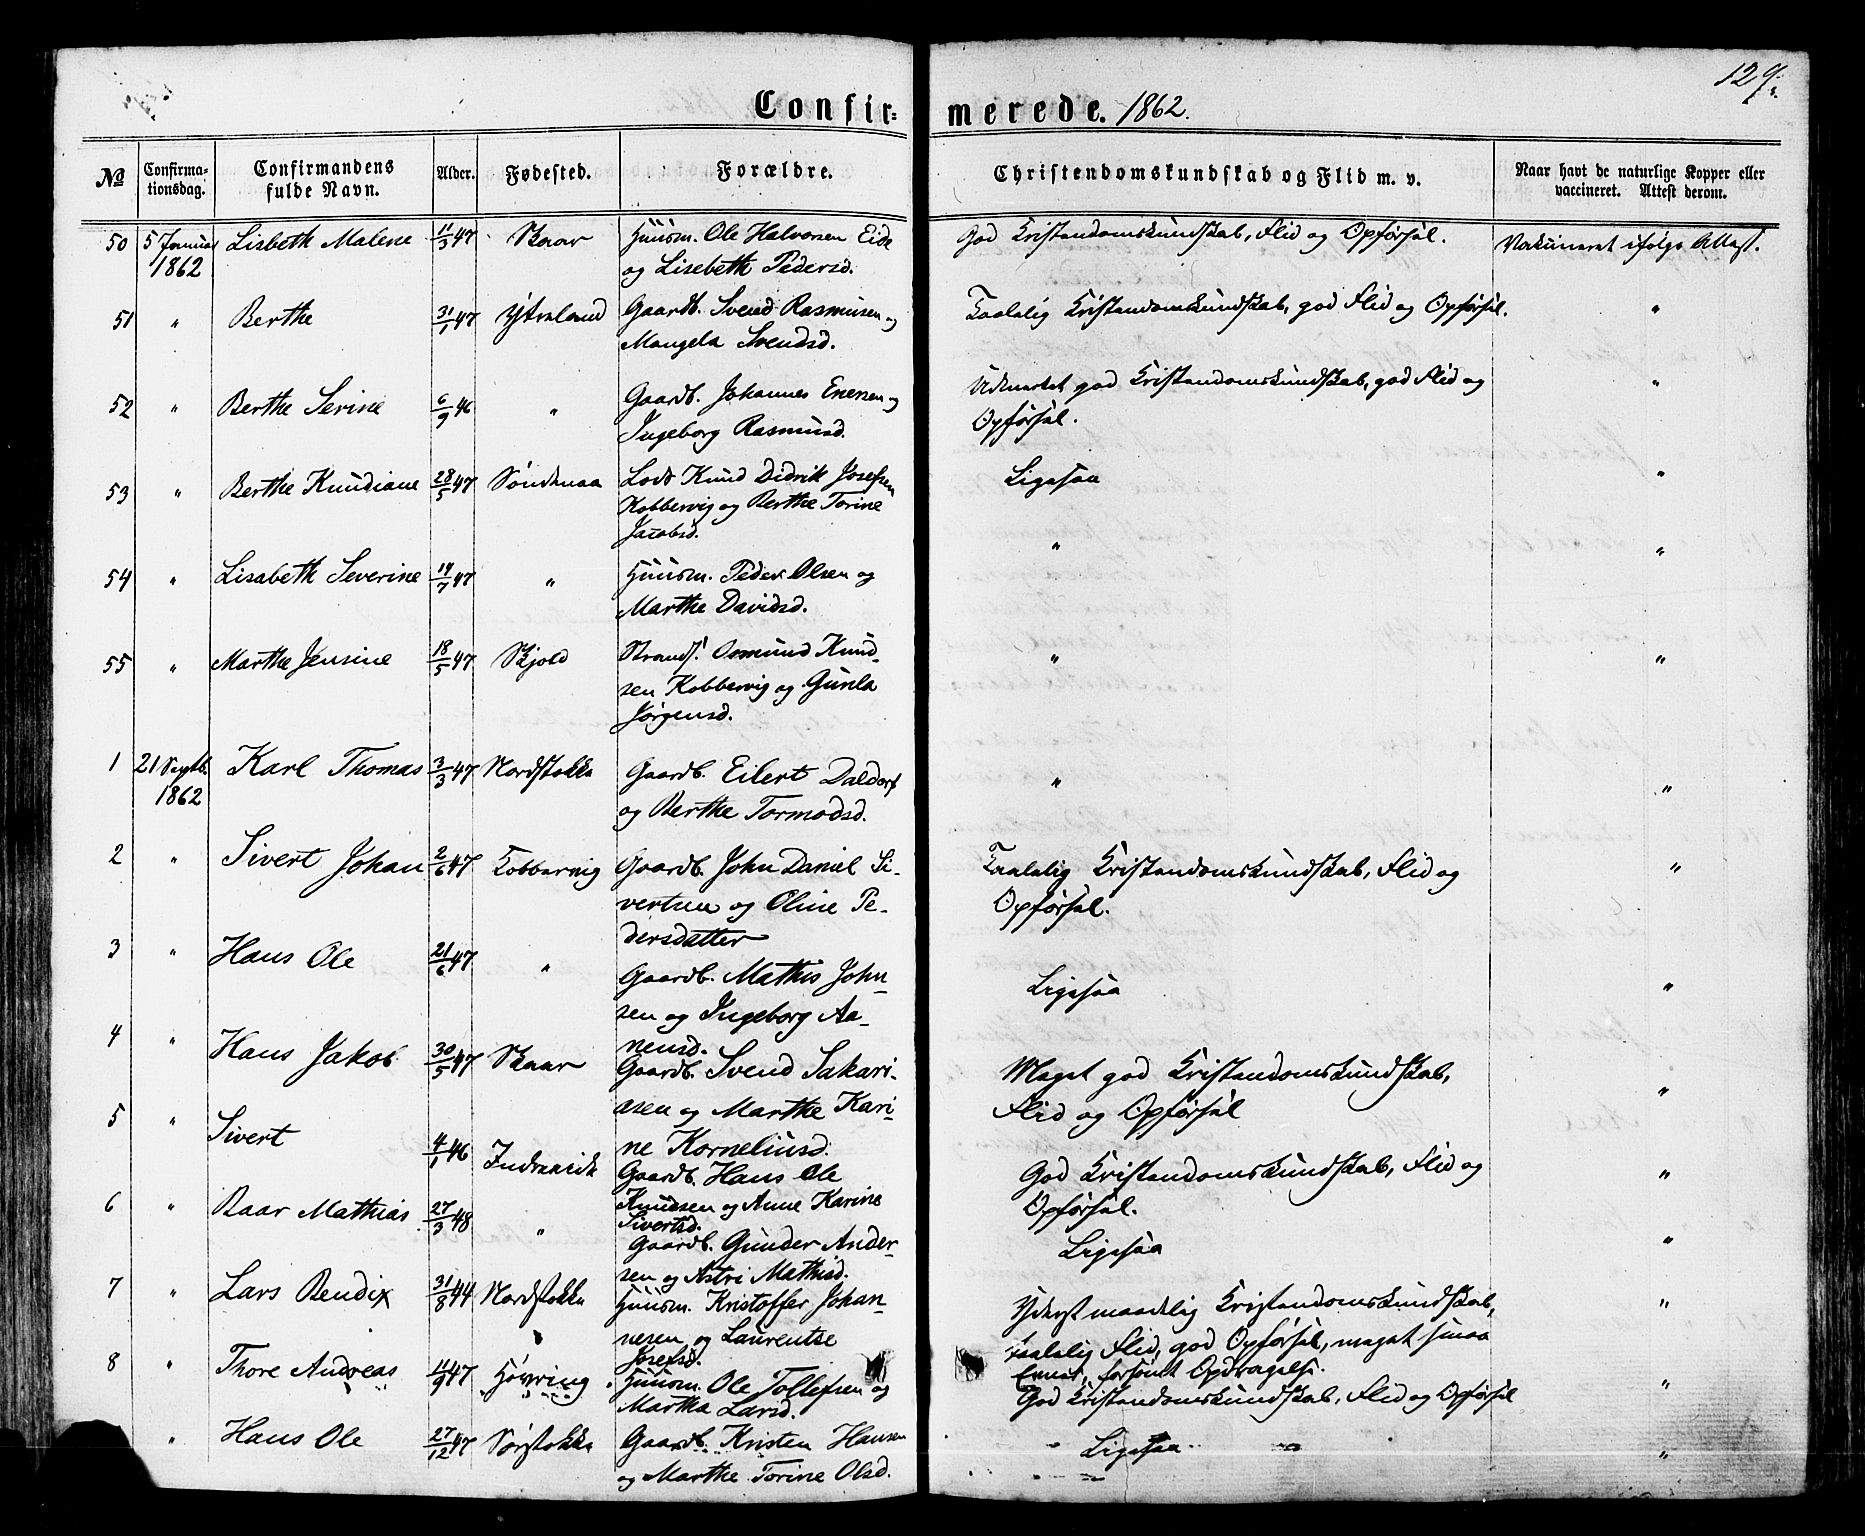 129.
Confir=merede. 1862.
No Confirmationsdag. Confirmandens fulde Navn. Alder. Fødested. Forældre. Christendomskundskab og Flid m. v. Naar havt de naturlige Kopper eller vaccineret. Attest derom.
50 5 Januar 1862 Lisbeth Malene 11/3 47 Skaar Huusm. Ole Halvorsen Eide God Kristendomskundskab, Flid og Opførsel. Vakcineret ifølge Attest.
og Lisebeth Pedersd.
51 " Berthe 31/1 47 Ytraland Gaardb. Svend Rasmusen og Taalelig Kristendomskundskab, god Flid og Opførsel. "
Mangela Svendsd.
52 " Berthe Serine 6/9 46 " Gaardb. Johannes Enersen og Udmærket god Kristendomskundskab, god Flid og "
Ingeborg Rasmusd. Opførsel.
53 " Berthe Knudiane 28/5 47 Søndenaa Lods Knud Didrik Josefsen Ligesaa "
Kobbervig og Berthe Torine
Jacobsd.
54 " Lisabeth Severine 14/7 47 " Huusm. Peder Olsen og " "
Marthe Davidsd.
55 " Marthe Jensine 18/5 47 Skjold Strands. Osmund Knud- " "
sen Kobbervig og Gunla
Jørgensd.
1 21 Septb. 1862 Karl Thomas 3/3 47 Nordstokke Gaardb. Eilert Daldorf " "
og Berthe Tormodsd.
2 " Sivert Johan 2/6 47 Kobbervig Gaardb. John Daniel Si- Taalelig Kristendomskundskab, Flid og "
vertsen og Oline Pe- Opførsel.
dersdatter
3 " Hans Ole 21/6 47 " Gaardb. Mathis John- Ligesaa "
sen og Ingeborg Aa-
nensd.
4 " Hans Jakob 30/5 47 Skaar Gaardb. Svend Sakari- Meget god Kristendomskundskab, "
asen og Marthe Kari- Flid og Opførsel
ne Korneliusd.
5 " Sivert 4/1 46 Indrevik Gaardb. Hans Ole God Kristendomskundskab, Flid og "
Knudsen og Anne Karine Opførsel.
Sivertsd.
6 " Baar Mathias 27/3 48 " Gaardb. Gunder Ander- Ligesaa "
sen og Astri Mathisd.
7 " Lars Bendix 31/8 44 Nordstokke Huusm. Kristoffer Johan- Yderst maadelig Kristendomskundskab, "
nesen og Laurentse taalelig Flid, god Opførsel, meget smaa
Josefsd. Evner, forsømt Opdragelse.
8 " Thore Andreas 11/9 47 Høvring Huusm. Ole Tollefsen og God Kristendomskundskab, Flid og Opførsel "
Martha Larsd.
" Hans Ole 27/12 47 Sørstokke Gaardb. Kristen Hansen Ligesaa "
og Marthe Torine Olsd.